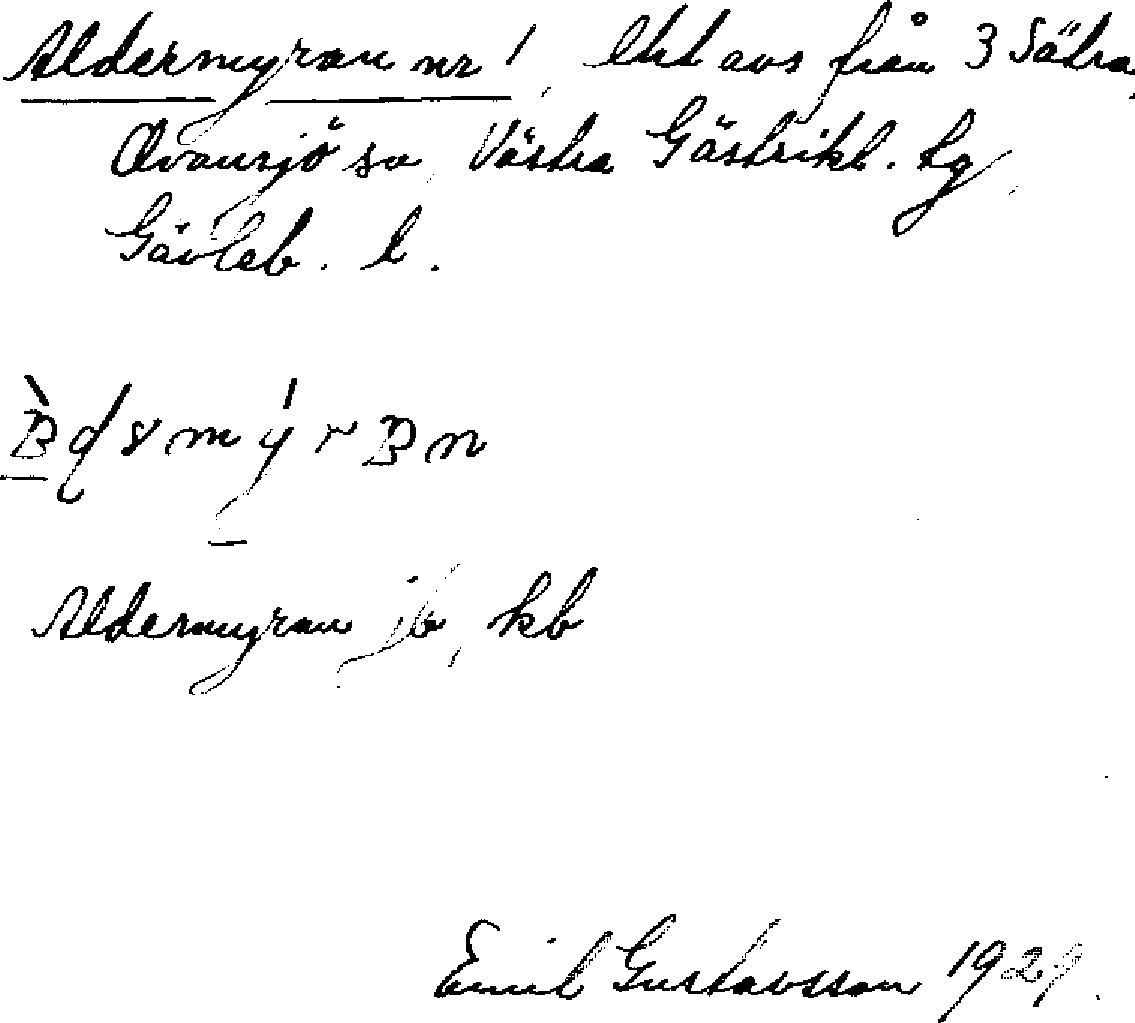 Aldermyran nr 1, lht avs från 3 Sätra,
Ovansjö sn, Västra Gästrikl. tg,
Gävleb. l.
Aldermyran jb, kb
Emil Gustavsson 192